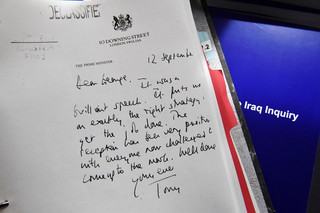 DECLASSIFIED
10 DOWNING STREET
LONDON SW1A 2AA
THE PRIME MINISTER
12 September
Dear George,
It was a
brilliant speech. It puts us
on exactly the right strategy
get the job done. The
reception has been very positive
with everyone now challenged to
come up to the mark. Well done
Yours ever
Tony
2
Iraq Inquiry